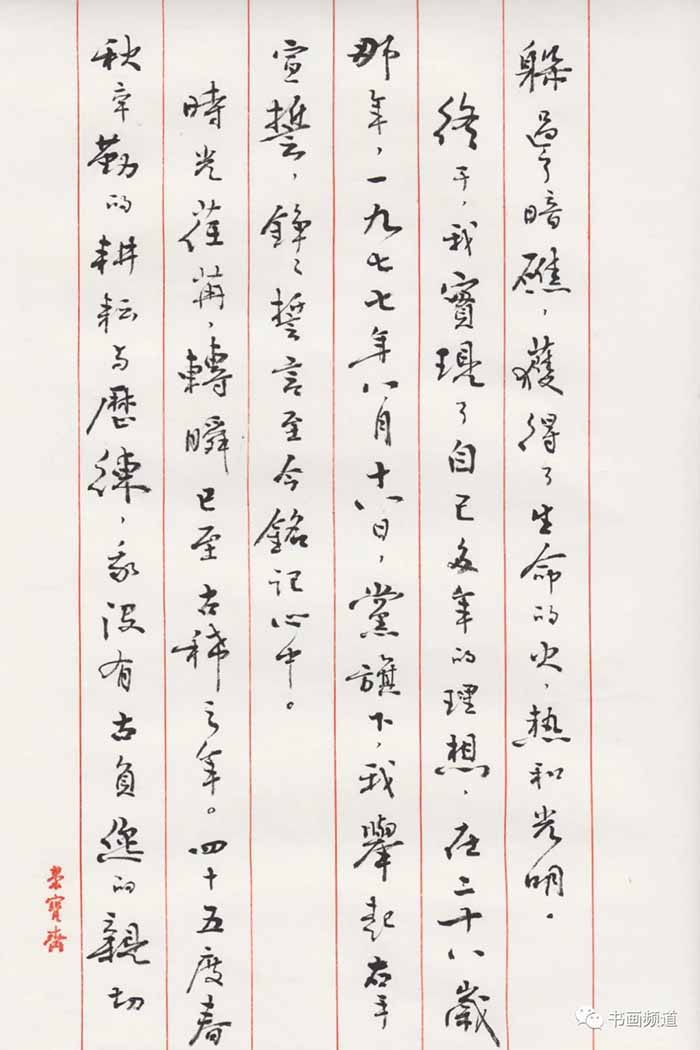 躲過了暗礁，獲得了生命的火，熱和光明。
終于，我實現了自己多年的理想，在二十八歲
那年，一九七七年八月十八日，黨旗下，我舉起右手
宣誓，錚々誓言至今銘記心中。
時光荏苒，轉瞬已至古稀之年。四十五度春
秋辛勤的耕耘与歷練，我没有古負您的親切
榮寶齋
书画频道